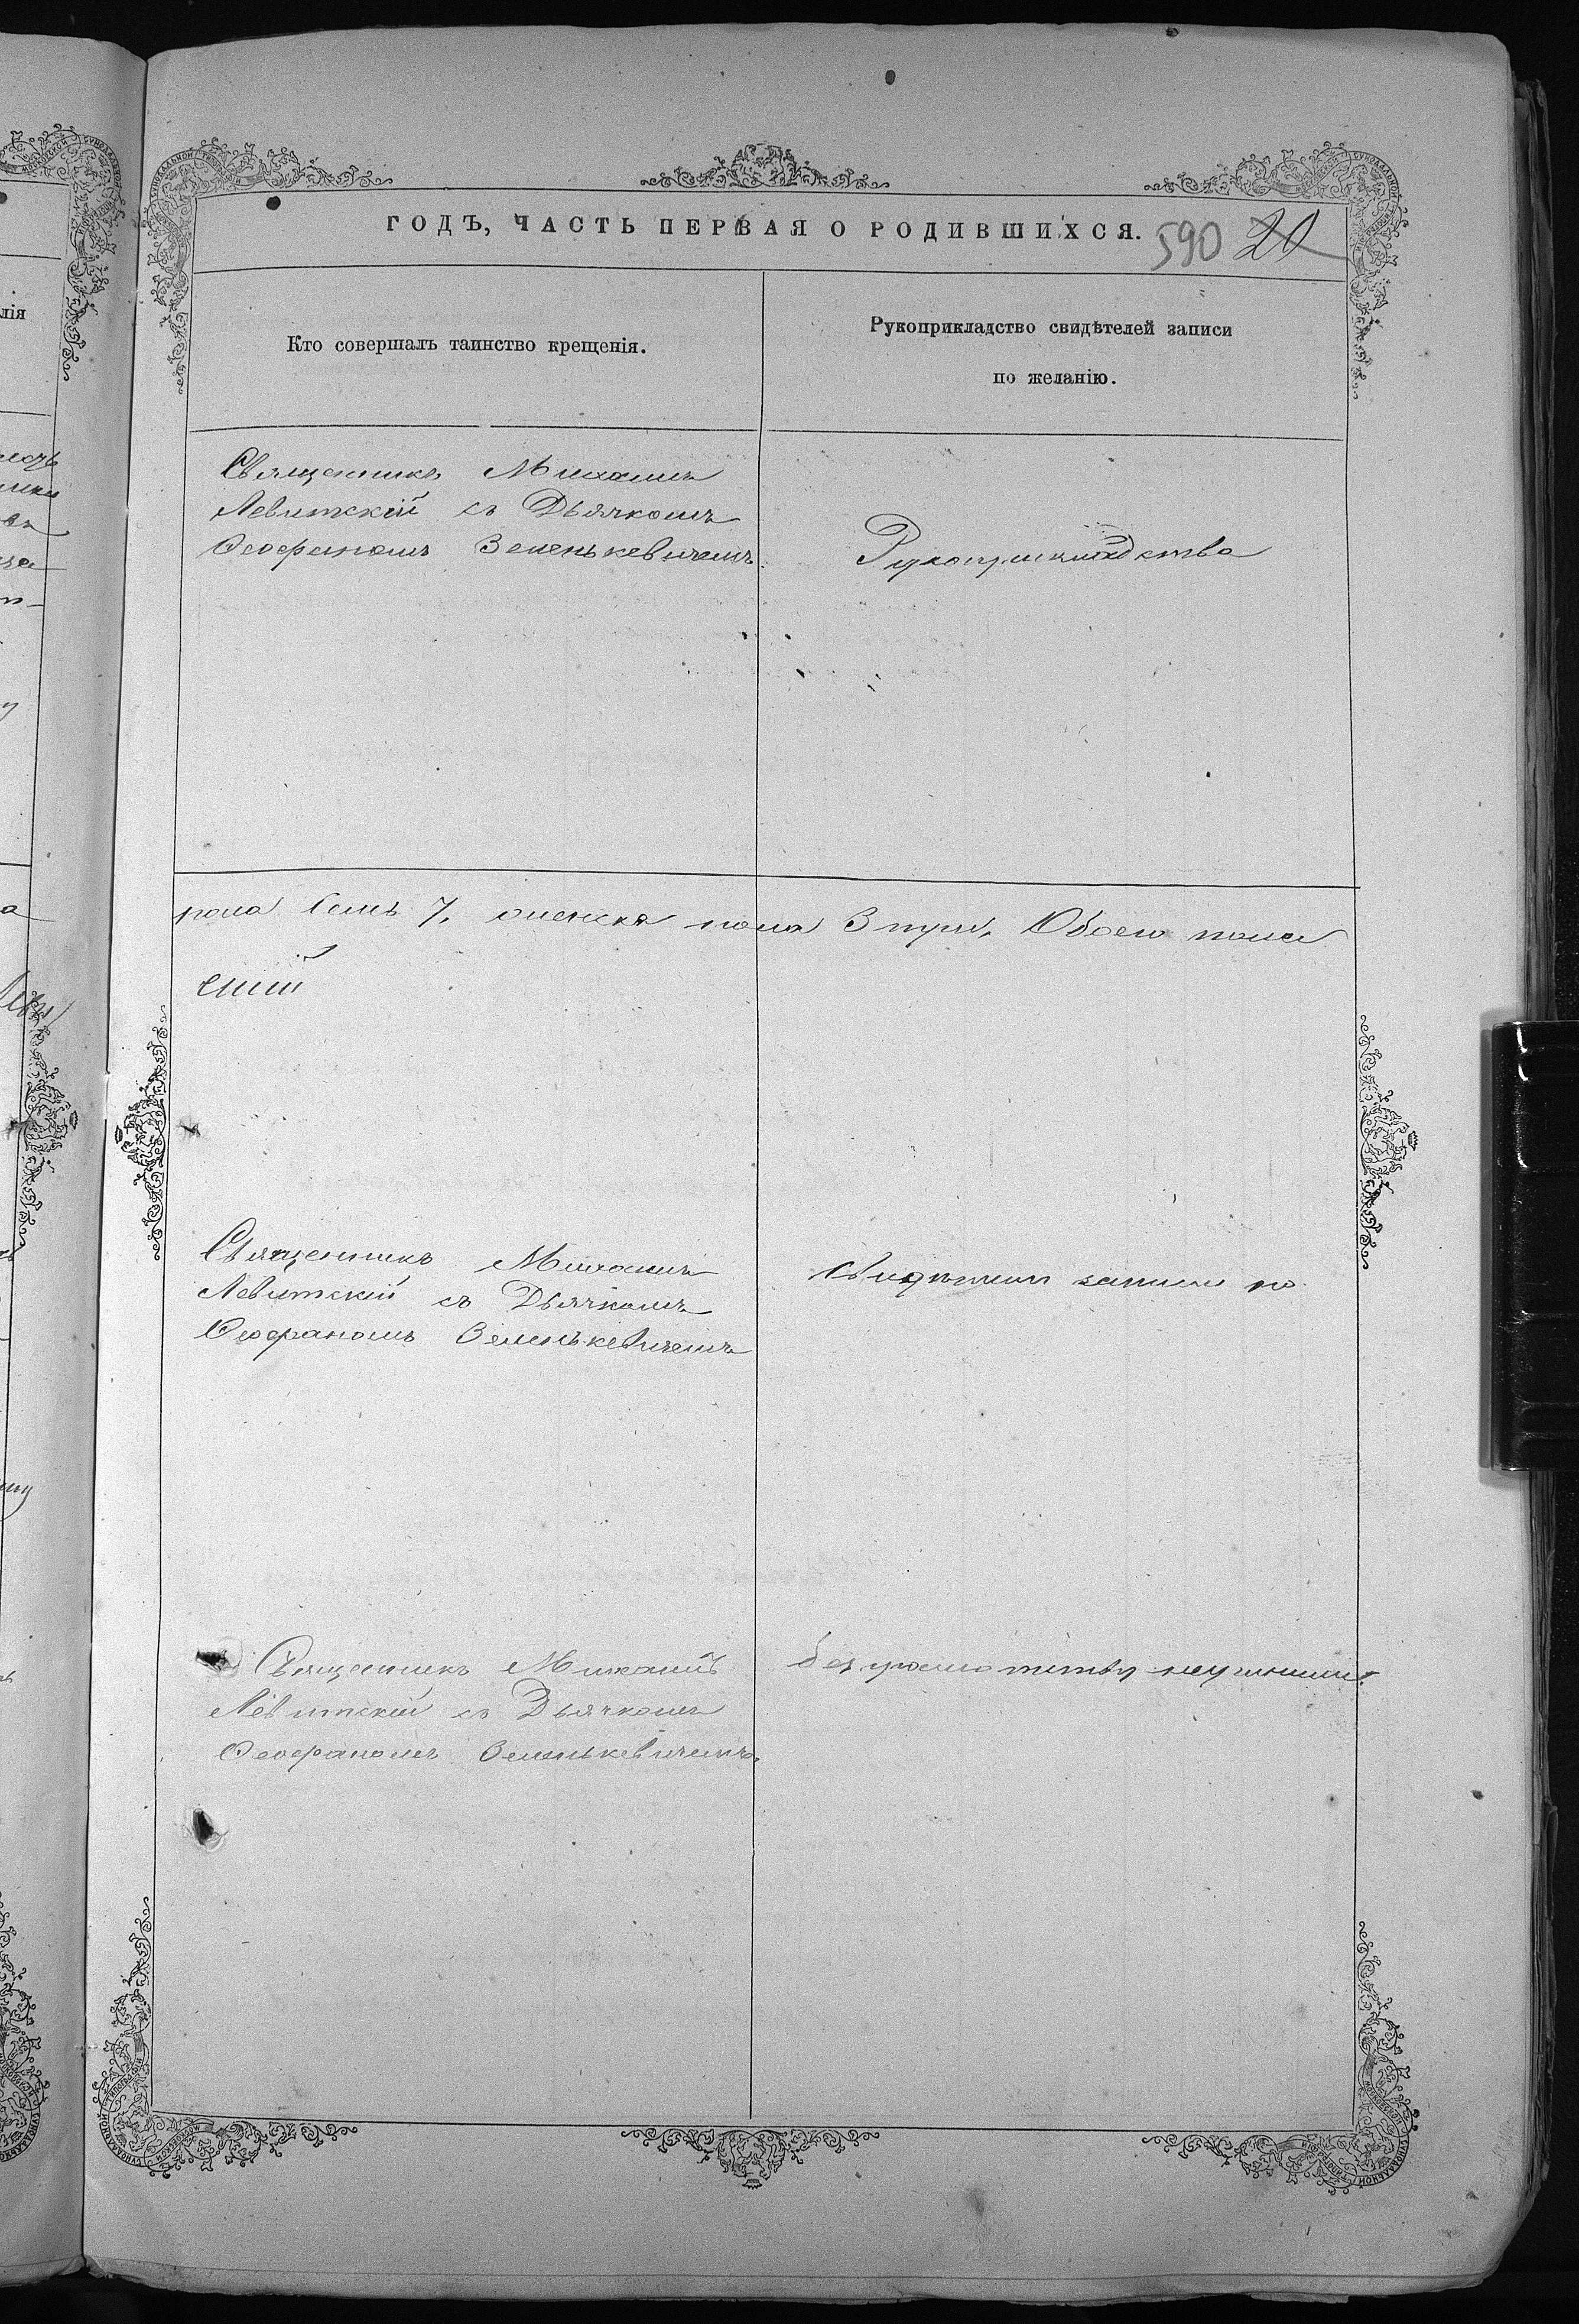 ГОДЪ, ЧАСТЬ ПЕРВАЯ О РОДИВШИХСЯ.
590 20
Кто совершалъ таинство крещенія.
Рукоприкладство свидѣтелей записи
по желанію.
Священникъ Михаилъ
Левитскій съ Дьячкомъ
Ѳеофаномъ Зеленькевичемъ.
Рукоприкладства
пола семь 7, женска пола 3 три, Обоего пола
Священникъ Михаилъ
Левитскій съ Дьячкомъ
Ѳеофаномъ Зеленькевичемъ
свидѣтели записи по
Священникъ Михаилъ
Левитскій съ Дьячкомъ
Ѳеофаномъ Зеленькевичемъ.
безграмотству неучинили.